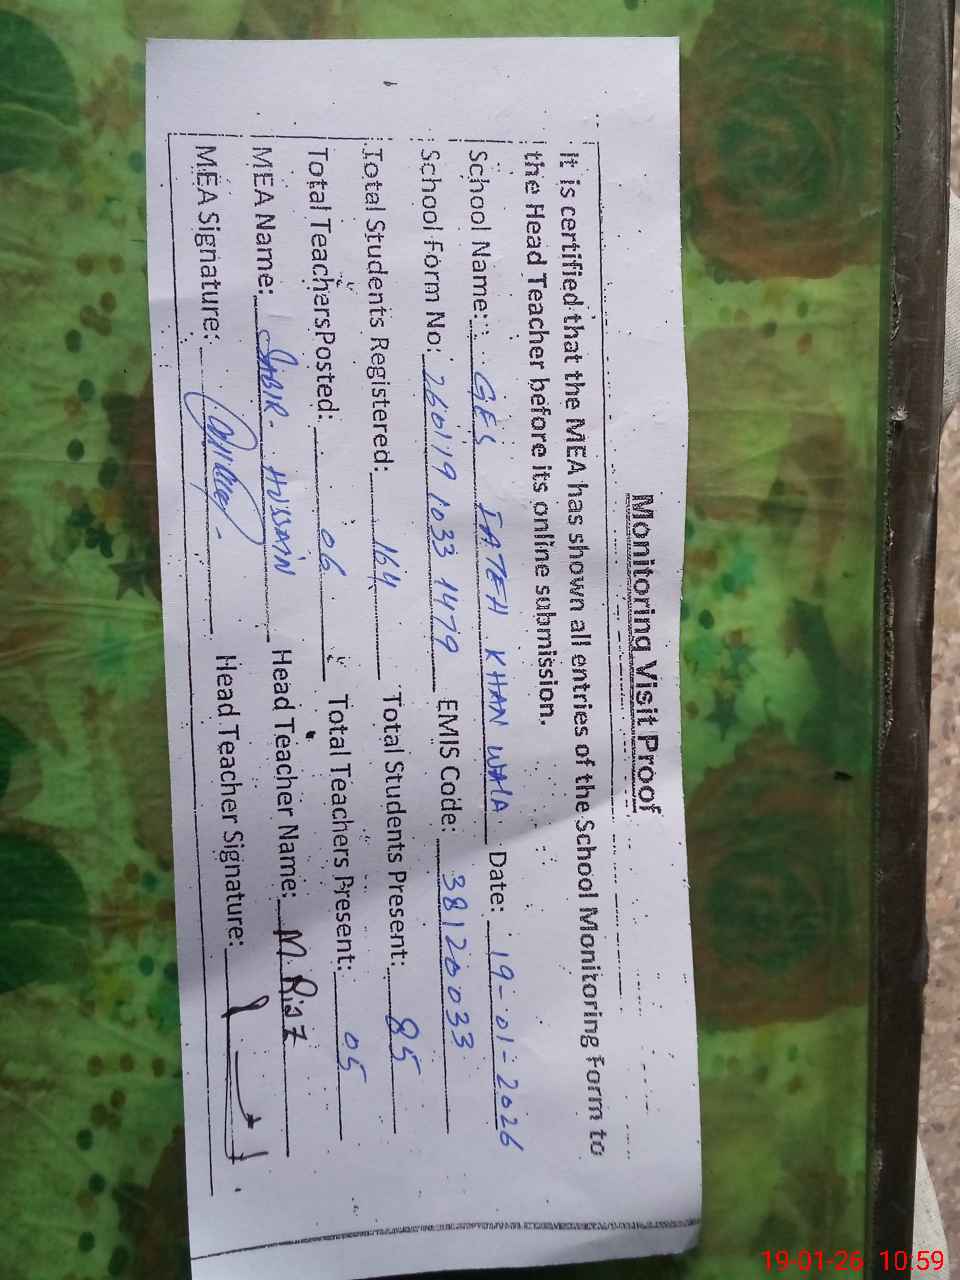 Monitoring Visit Proof
It is certified that the MEA has shown all entries of the School Monitoring Form to
the Head Teacher before its online submission.
School Name: GES FATEH KHAN WALA Date: 19-01-2026
School Form No: 260119 1033 1479 EMIS Code: 38120033
Total Students Registered: 164 Total Students Present: 85
Total Teachers Posted: 06 Total Teachers Present: 05
MEA Name: SABIR HUSSAIN Head Teacher Name: M. Riaz
MEA Signature: Head Teacher Signature:
19-01-26 10:59